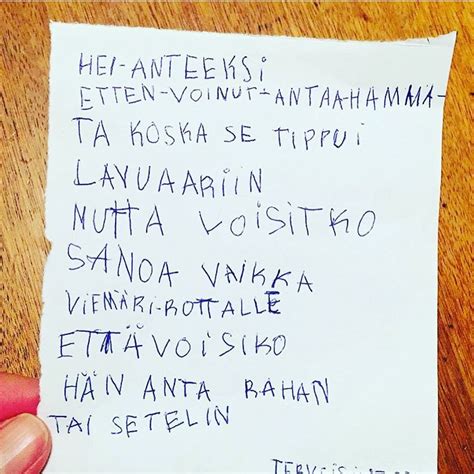 HEI-ANTEEKSI
ETTEN-VOINUT-ANTAA-HAMMA-
TA KOSKA SE TIPPUI
LAVUAARIIN
MUTTA VOISITKO
SANOA VAIKKA
VIEMÄRI-ROTTALLE
ETTÄ VOISIKO
HÄN ANTA RAHAN
TAI SETELIN